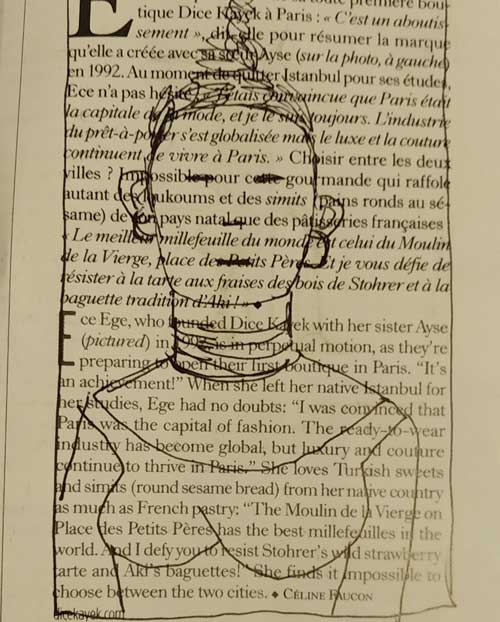 E toute première bou-
tique Dice Kayek à Paris : « C'est un aboutis-
sement », dit-elle pour résumer la marque
qu'elle a créée avec sa sœur Ayse (sur la photo, à gauche)
en 1992. Au moment de quitter Istanbul pour ses études,
Ece n'a pas hésité : « J'étais convaincue que Paris était
la capitale de la mode, et je le suis toujours. L'industrie
du prêt-à-porter s'est globalisée mais le luxe et la couture
continuent de vivre à Paris. » Choisir entre les deux
villes ? Impossible pour cette gourmande qui raffole
autant des loukoums et des simits (pains ronds au sé-
same) de son pays natal que des pâtisseries françaises :
« Le meilleur millefeuille du monde est celui du Moulin
de la Vierge, place des Petits Pères. Et je vous défie de
résister à la tarte aux fraises des bois de Stohrer et à la
baguette tradition d'Aki ! » ◆
Ece Ege, who founded Dice Kayek with her sister Ayse
(pictured) in 1992, is in perpetual motion, as they're
preparing to open their first boutique in Paris. “It's
an achievement!” When she left her native Istanbul for
her studies, Ege had no doubts: “I was convinced that
Paris was the capital of fashion. The ready-to-wear
industry has become global, but luxury and couture
continue to thrive in Paris.” She loves Turkish sweets
and simits (round sesame bread) from her native country
as much as French pastry: “The Moulin de la Vierge on
Place des Petits Pères has the best millefeuilles in the
world. And I defy you to resist Stohrer's wild strawberry
tarte and Aki's baguettes!” She finds it impossible to
choose between the two cities. ◆ CÉLINE FAUCON
dicekayek.com